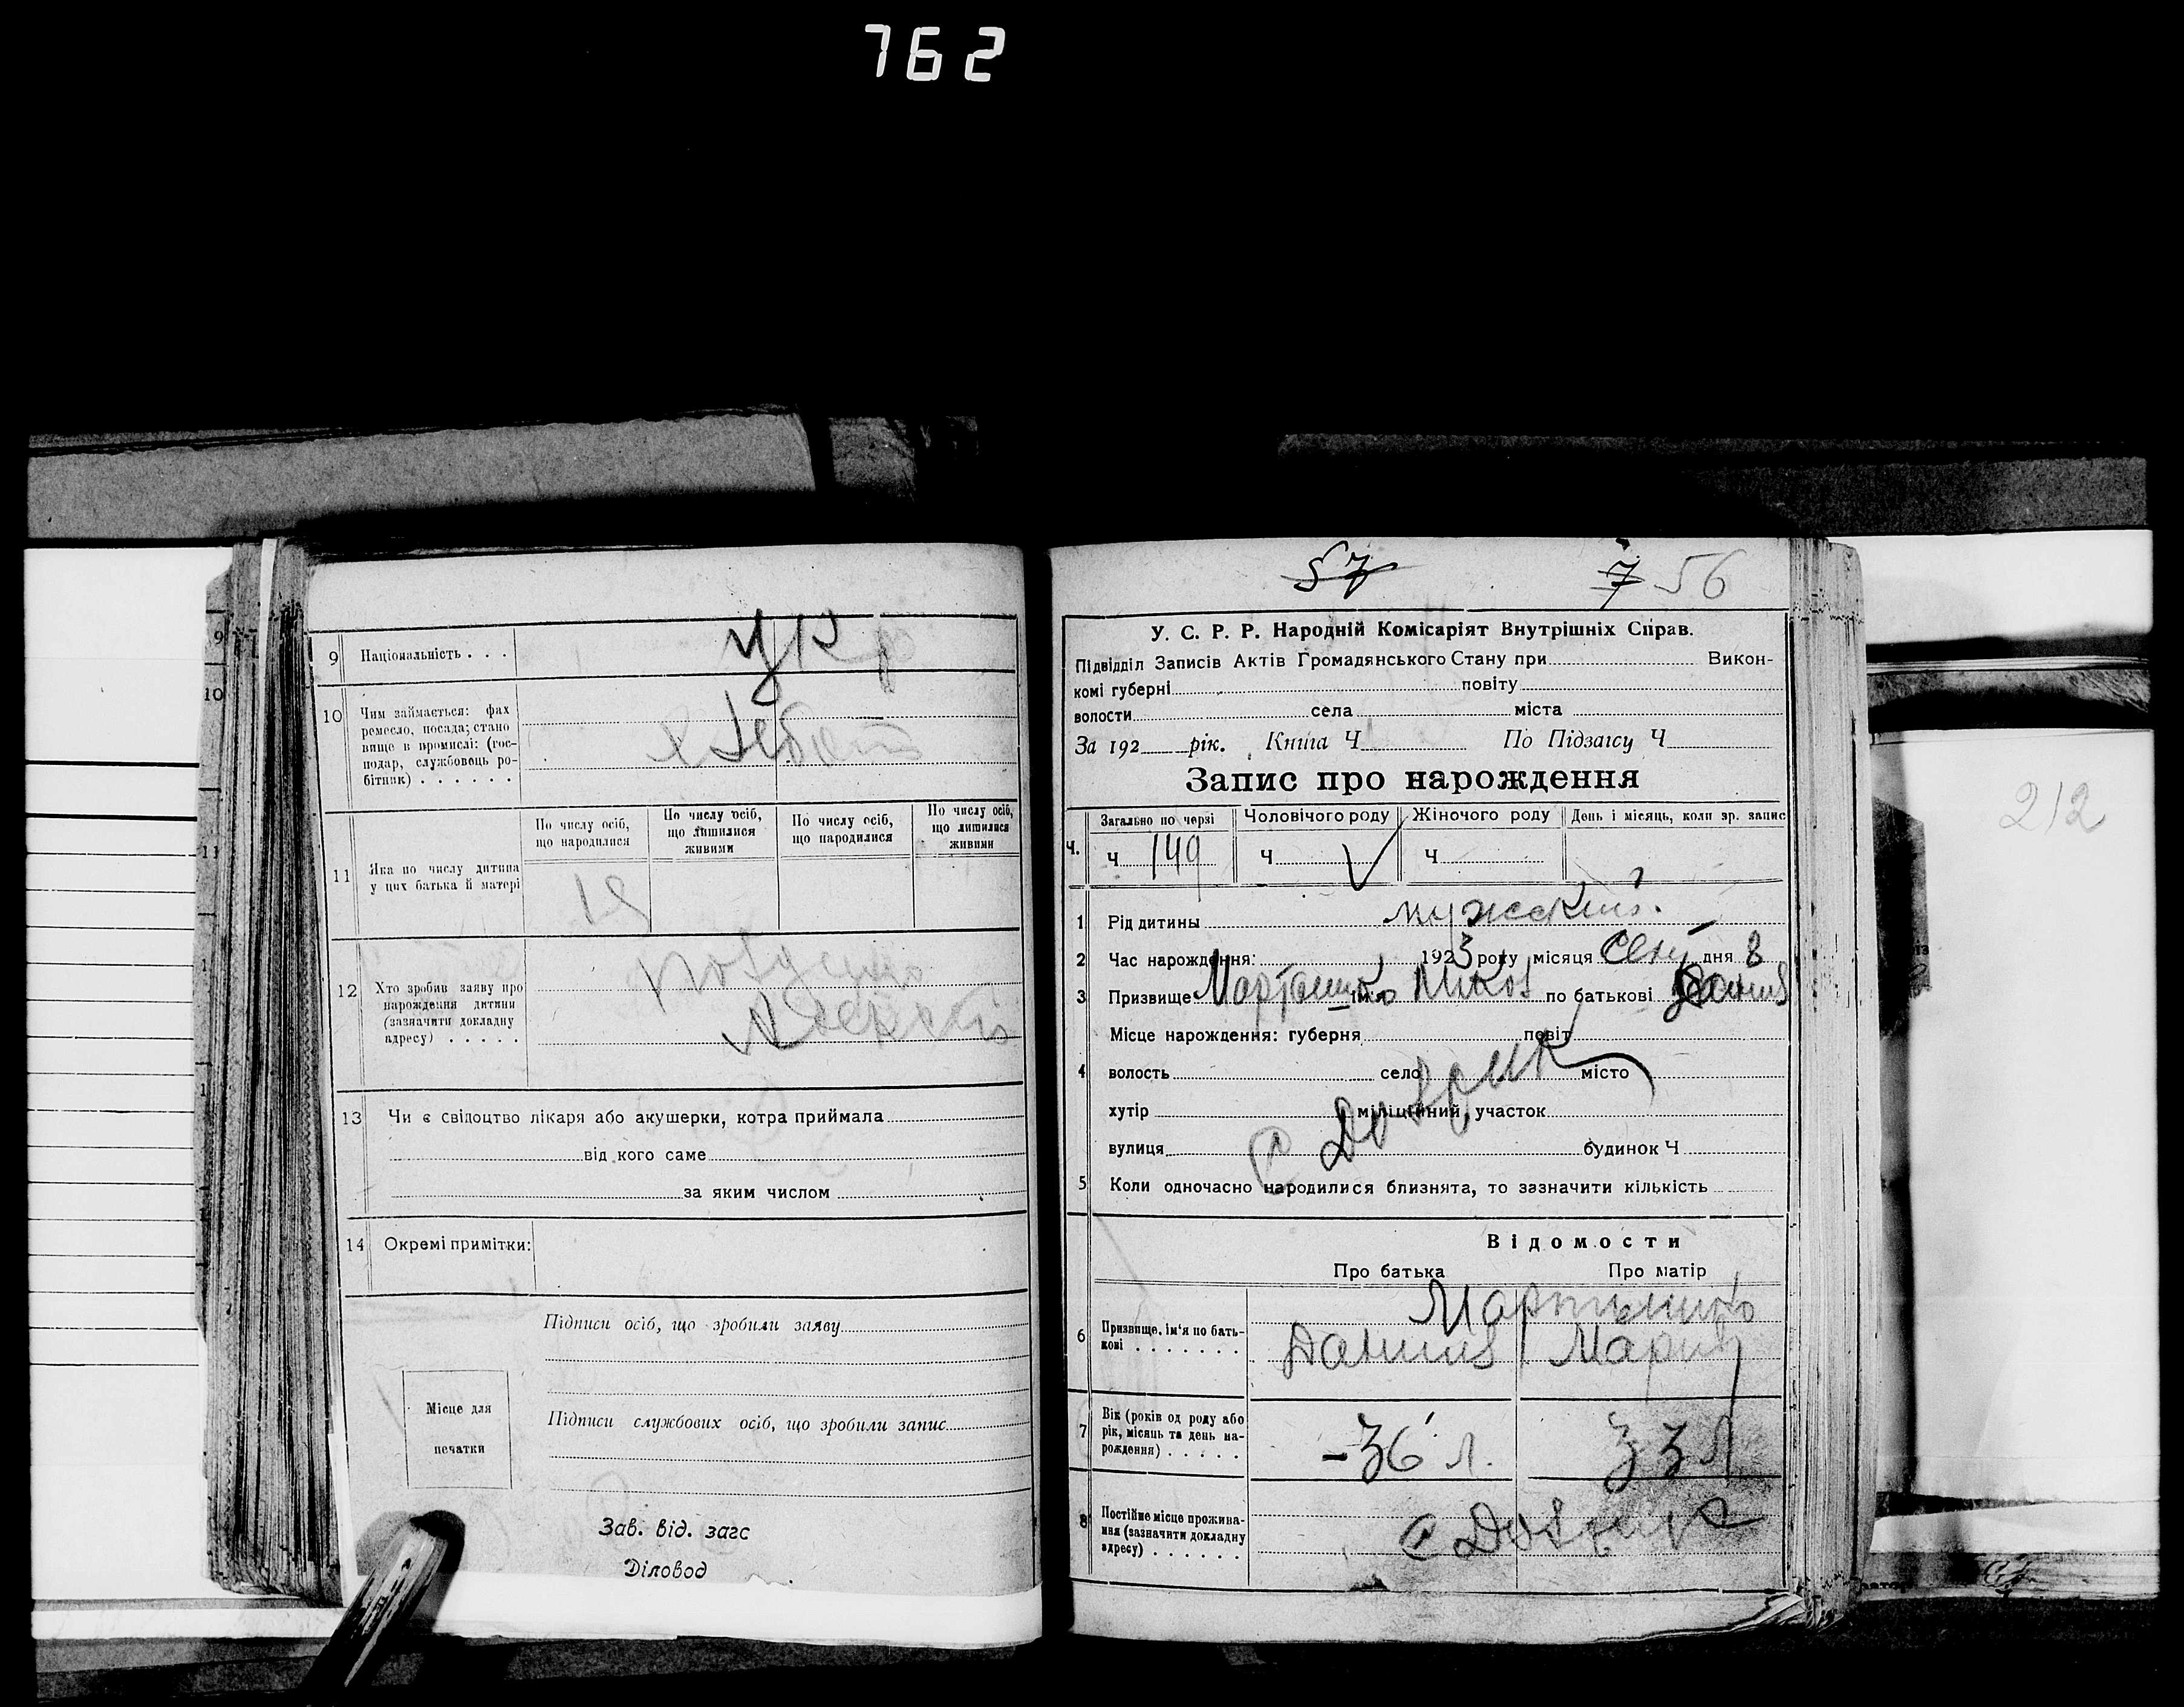 762
9 Національність . . . Укр
10 Чим займається: фах
ремесло, посада; стано
вище в промислі: (гос-
подар, службовець ро-
бітник) . . . . . .
По числу осіб,
що народилися
По числу осіб,
що лишилися
живими
По числу осіб,
що народилися
По числу осіб,
що лишилися
живими
11 Яка по числу дитина
у цих батька й матері
12 Хто зробив заяву про
нарождення дитини
(зазначити докладну
адресу) . . . . .
Алексей
13 Чи є свідоцтво лікаря або акушерки, котра приймала
від кого саме
за яким числом
14 Окремі примітки:
Підписи осіб, що зробили заяву
Місце для
печатки
Підписи службових осіб, що зробили запис
Зав. від. загс
Діловод
57 7 56
У. С. Р. Р. Народній Комісаріят Внутрішніх Справ.
Підвідділ Записів Актів Громадянського Стану при Викон-
комі губерні повіту
волости села міста
За 192 рік. Книга Ч По Підзагсу Ч
Запис про нарождення
Ч. Загально по черзі Чоловічого роду Жіночого роду День і місяць, коли зр. запис
Ч 149 Ч Ч
1 Рід дитины мужской
2 Час нарождення: 1923 року місяця Сент дня 8
3 Призвище ім'я Никол по батькові Данил
Місце нарождення: губерня повіт
4 волость село місто
хутір міліційний участок
вулиця будинок Ч
5 Коли одночасно народилися близнята, то зазначити кількість
Відомости
Про батька Про матір
6 Призвище, ім'я по бать-
кові . . . . . . .
Данил Мария
7 Вік (років од роду або
рік, місяць та день на-
рождення) . . . . .
-36 л. 33 л
8 Постійне місце прожива-
ння (зазначити докладну
адресу) . . . . . .
212